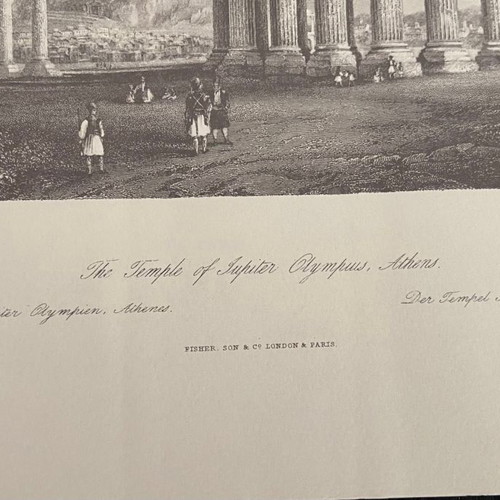 The Temple of Jupiter Olympius, Athens.
iter Olympien, Athenes.
Der Tempel
FISHER, SON & Co. LONDON & PARIS.